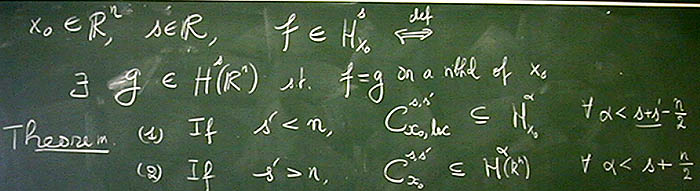 x₀ ∈ ℝⁿ, s ∈ ℝ, f ∈ H^s_{x₀} ⇔^{def}
∃ g ∈ H^s(ℝⁿ) s.t. f = g on a nhd of x₀
Theorem. (1) If s' < n, C^{s,s'}_{x₀,loc} ⊆ H^α_{x₀} ∀ α < s+s'-n/2
(2) If s' > n, C^{s,s'}_{x₀} ⊆ H^α(ℝⁿ) ∀ α < s + n/2